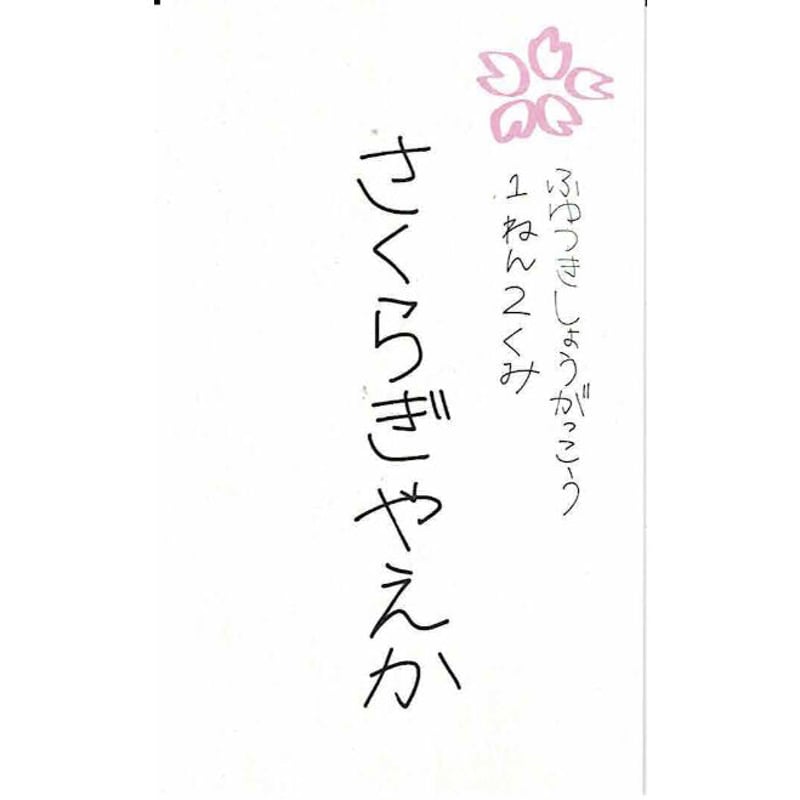 ふゆつきしょうがっこう
1ねん2くみ
さくらぎやえか